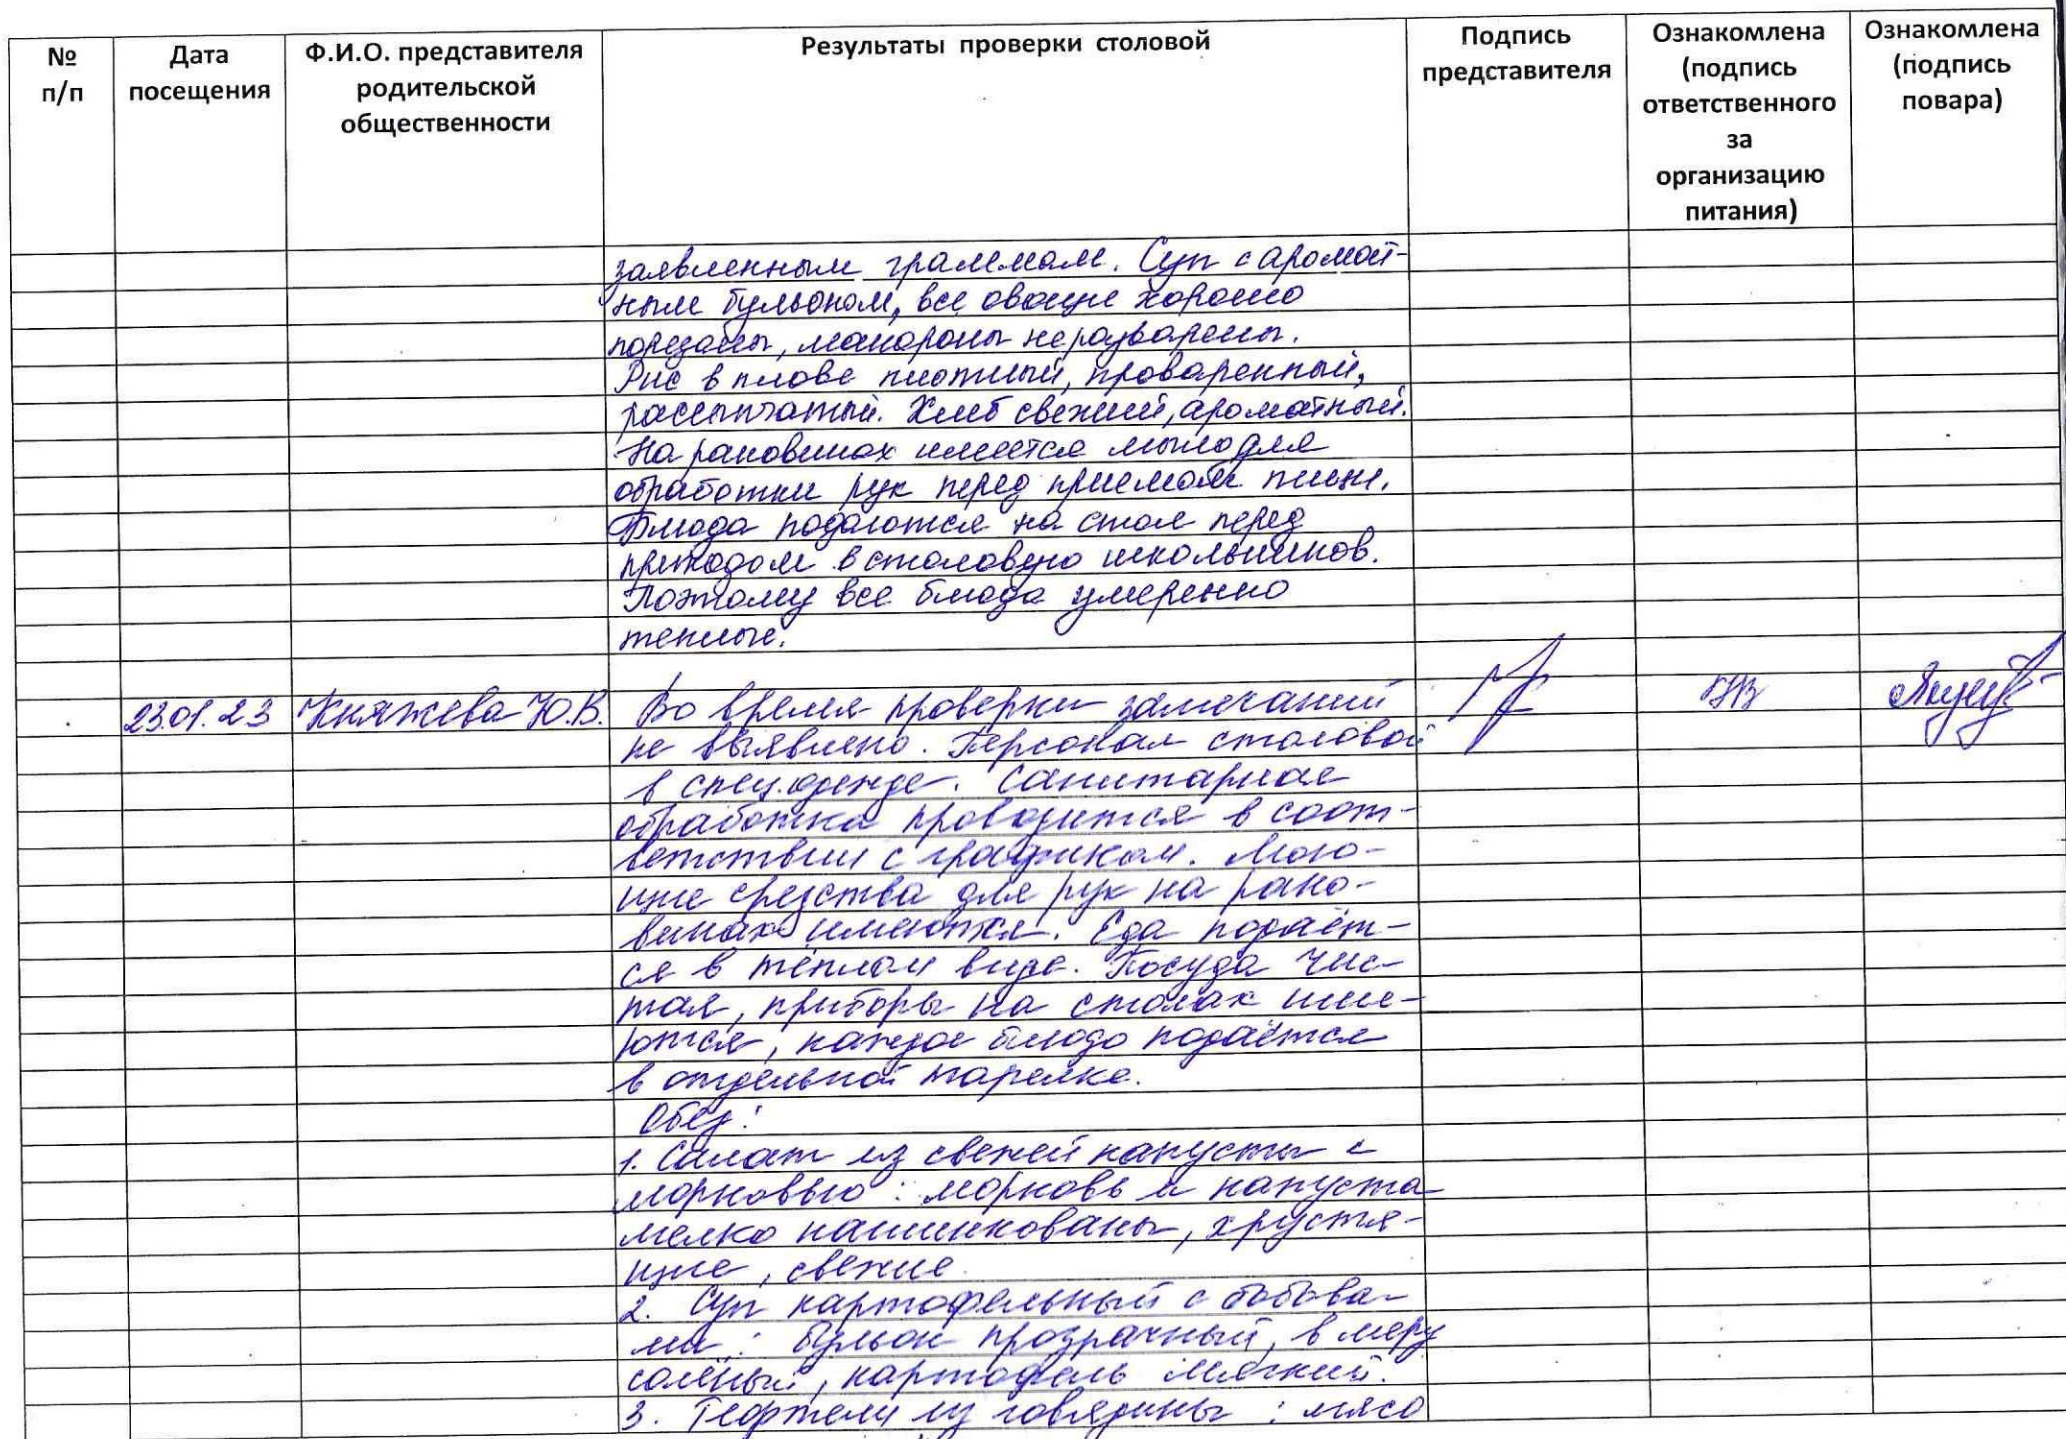 № п/п
Дата посещения
Ф.И.О. представителя родительской общественности
Результаты проверки столовой
Подпись представителя
Ознакомлена (подпись ответственного за организацию питания)
Ознакомлена (подпись повара)
заявленным граммам. Суп с аромат-
ным бульоном, все овощи хорошо
порезаны, макароны не разварены.
Рис в плове плотный, проваренный,
рассыпчатый. Хлеб свежий, ароматный.
На раковинах имеется мыло для
обработки рук перед приемом пищи.
Блюда подаются на стол перед
приходом в столовую школьников.
Поэтому все блюда умеренно
теплые.
23.01.23 Княжева Ю.В. Во время проверки замечаний
не выявлено. Персонал столовой
в спец.одежде. Санитарная
обработка проводится в соот-
ветствии с графиком. Мою-
щие средства для рук на рако-
винах имеются. Еда подаёт-
ся в тёплом виде. Посуда чис-
тая, приборы на столах име-
ются, каждое блюдо подаётся
в отдельной тарелке.
Обед:
1. Салат из свежей капусты с
морковью: морковь и капуста
мелко нашинкованы, хрустя-
щие, свежие
2. Суп картофельный с бобовы-
ми: бульон прозрачный, в меру
солёный, картофель мягкий.
3. Тефтели из говядины: мясо